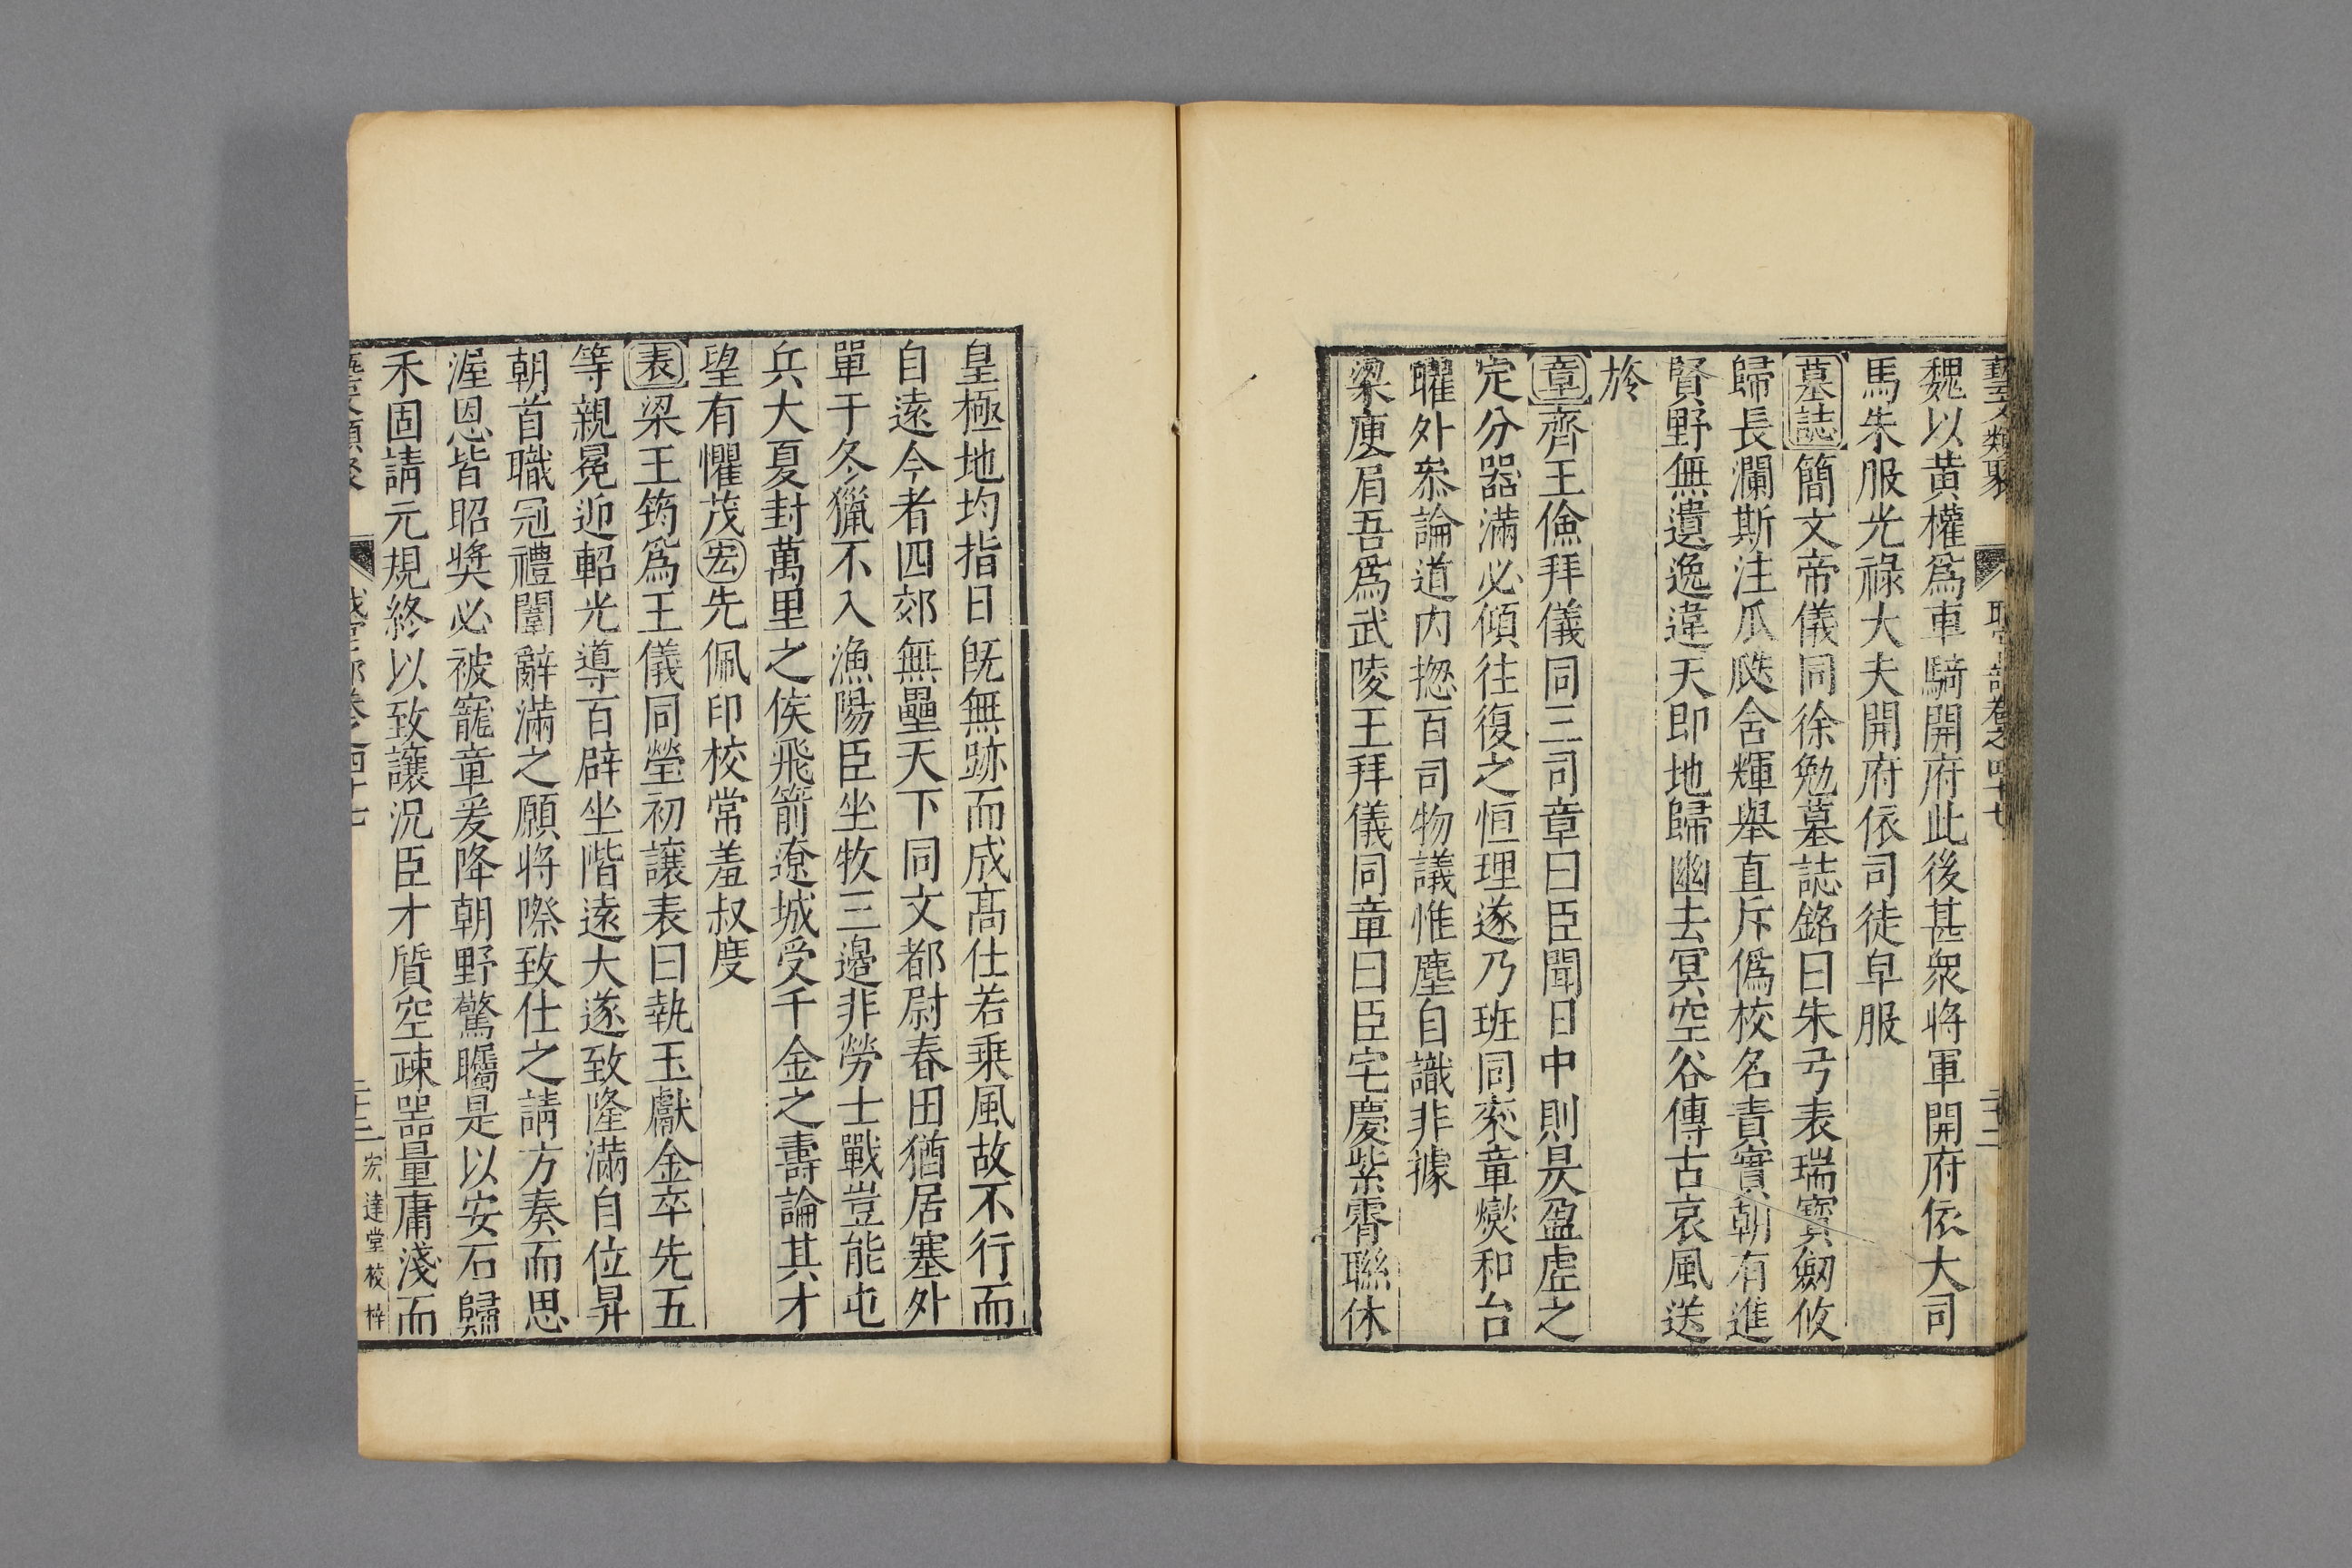 藝文類聚 職官部卷之四十七 二十二
魏以黃權爲車騎開府此後甚衆將軍開府依大司
馬朱服光祿大夫開府依司徒皁服
墓誌簡文帝儀同徐勉墓誌銘曰朱弓表瑞寶劒攸
歸長瀾斯注瓜瓞舍輝舉直斥僞校名責實朝有進
賢野無遺逸違天即地歸幽去冥空谷傳古哀風送
旍
章齊王儉拜儀同三司章曰臣聞日中則昃盈虛之
定分器滿必傾往復之恒理遂乃班同袞章爕和台
曜外叅論道内揔百司物議惟塵自識非據
梁庾肩吾爲武陵王拜儀同章曰臣宅慶紫霄聯休
皇極地均指日旣無跡而成高仕若乗風故不行而
自遠今者四郊無壘天下同文都尉春田猶居塞外
單于冬獵不入漁陽臣坐牧三邉非勞士戰豈能屯
兵大夏封萬里之侯飛箭遼城受千金之壽論其才
望有懼茂宏先佩印校常羞叔度
表梁王筠爲王儀同瑩初讓表曰執玉獻金卒先五
等親冕迎軺光導百辟坐階遠大遂致隆滿自位昇
朝首職冠禮闈辭滿之願將際致仕之請方奏而思
渥恩皆昭奬必被寵章爰降朝野驚矚是以安石歸
禾固請元規終以致讓況臣才質空疎噐量庸淺而
藝文類聚 職官部卷之四十七 二十三 宏達堂校梓